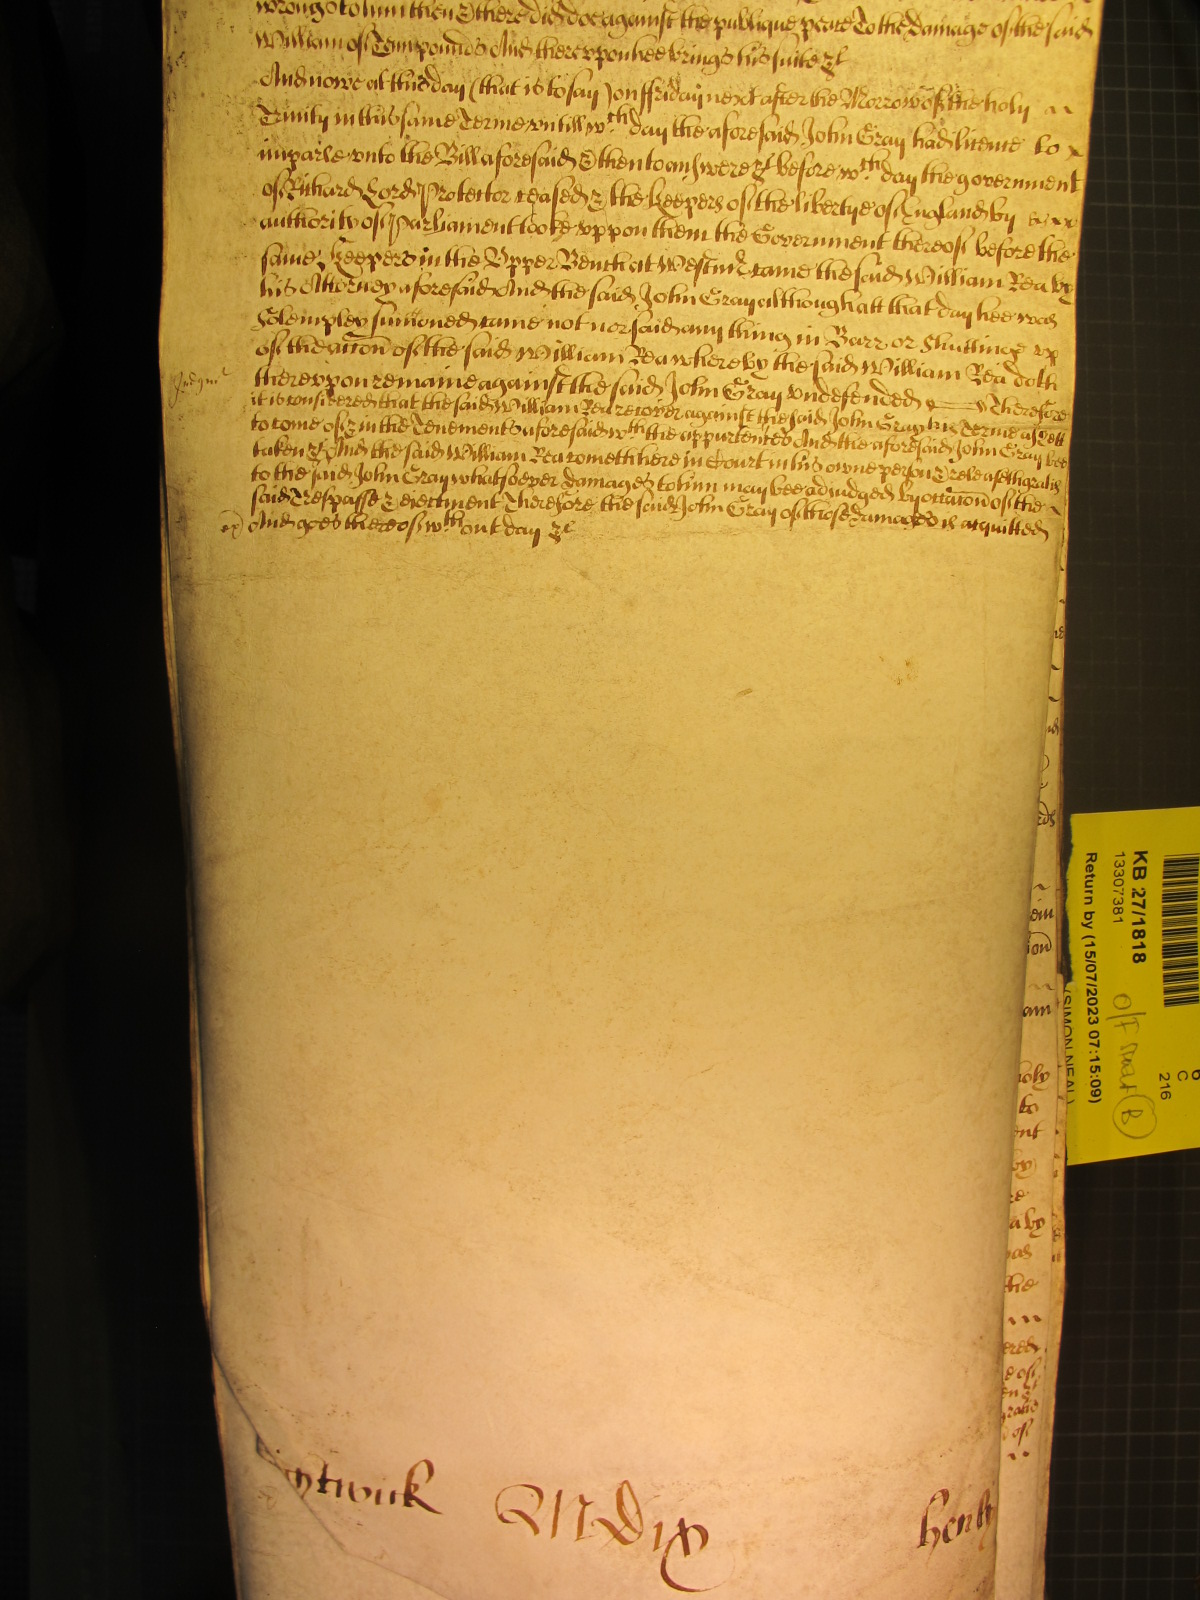 wrongs to him then & there did doe against the publique peace To the damage of the said
William of Tenn pounds And thereuppon hee brings his suite &c
And nowe at this day (that is to say) on ffriday next after the Morrow of the holy
Trinity in this same Terme untill wch day the aforesaid John Gray had licence to
imparle unto the Bill aforesaid & then to answere &c before wch day the government
of Richard Lord Protector ceased & the keepers of the libertye of England by
authority of Parliament tooke uppon them the Government thereof before the
same Keepers in the Upper Bench at Westmr came the said William Rea by
his Attorney aforesaid And the said John Gray although att that day hee was
Solempley sumoned came not nor said any thing in Barr or Shuttinge up
of the accon of the said William Rea whereby the said William Rea doth
thereuppon remaine against the said John Gray undefended Therefore
Judgmt
it is considered that the said William Rea recover against the said John Gray his Terme as yett
to come of & in the Tenements aforesaid wth the appurtences And the aforesaid John Gray bee
taken &c And the said William Rea cometh here in Court in his owne person & releaseth gratis
to the said John Gray whatsoever damages to him may bee adjudged by occacon of the
said Trespasse & ejectment Therefore the said John Gray of those damages is acquitted
And goes thereof wthout day &c
ntwick
MDix
henly
KB 27/1818
13307381
Return by (15/07/2023 07:15:09)
(SIMON NEAL)
6
C
216
B